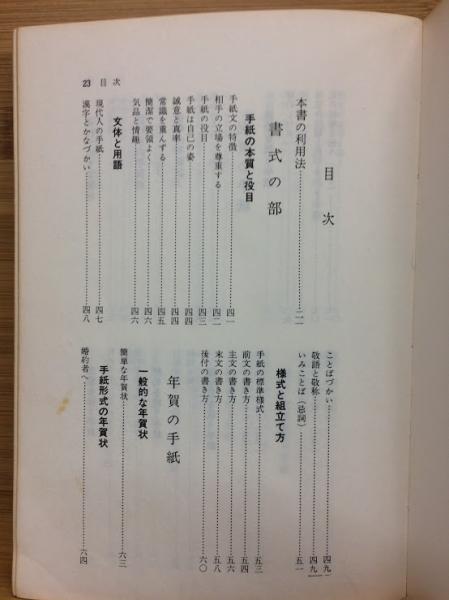 目次
本書の利用法……二一
書式の部
手紙の本質と役目
手紙文の特徴……四一
相手の立場を尊重する……四二
手紙の役目……四三
手紙は自己の姿……四四
誠意と真率……四四
常識を重んずる……四五
簡潔で要領よく……四六
気品と情趣……四六
文体と用語
現代人の手紙……四七
漢字とかなづかい……四八
ことばづかい……四九
敬語と敬称……四九
いみことば（忌詞）……五一
様式と組立て方
手紙の標準様式……五三
前文の書き方……五四
主文の書き方……五六
末文の書き方……五八
後付の書き方……六〇
年賀の手紙
一般的な年賀状
簡単な年賀状……六三
手紙形式の年賀状
婚約者へ……六四
23 目次